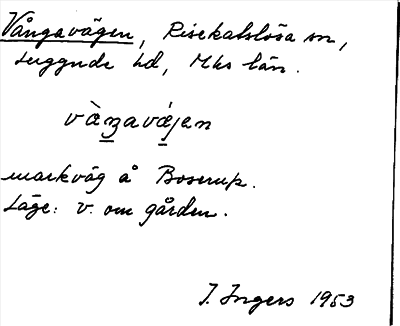 Vångavägen, Risekatslösa sn,
Luggude hd, Mhs län.
vàŋavä́jen
markväg å Boserup.
Läge: v. om gården.
I. Ingers 1953